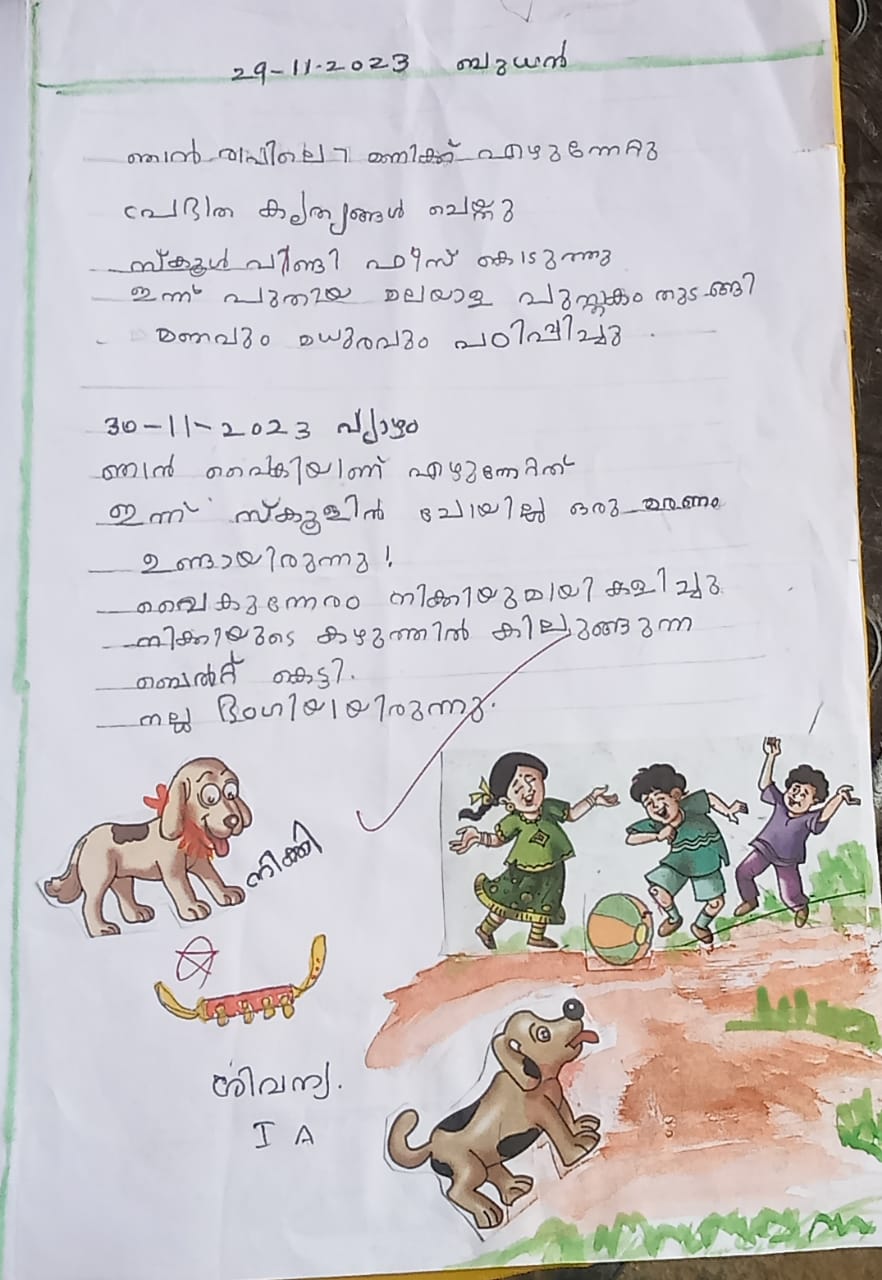 29-11-2023 ബുധൻ
ഞാൻ രാവിലെ 7 മണിക്ക് എഴുന്നേറ്റു
പ്രഭാത കൃത്യങ്ങൾ ചെയ്തു
സ്കൂൾ വണ്ടി ഫീസ് കൊടുത്തു
ഇന്ന് പുതിയ മലയാള പുസ്തകം തുടങ്ങി
മണവും മധുരവും പഠിപ്പിച്ചു.
30-11-2023 വ്യാഴം
ഞാൻ വൈകിയാണ് എഴുന്നേറ്റത്
ഇന്ന് സ്കൂളിൽ പോയില്ല ഒരു മരണം
ഉണ്ടായിരുന്നു!
വൈകുന്നേരം നിക്കിയുമായി കളിച്ചു
നിക്കിയുടെ കഴുത്തിൽ കിലുങ്ങുന്ന
ബെൽറ്റ് കെട്ടി.
നല്ല ഭംഗിയായിരുന്നു.
നിക്കി
ശിവന്യ.
I A